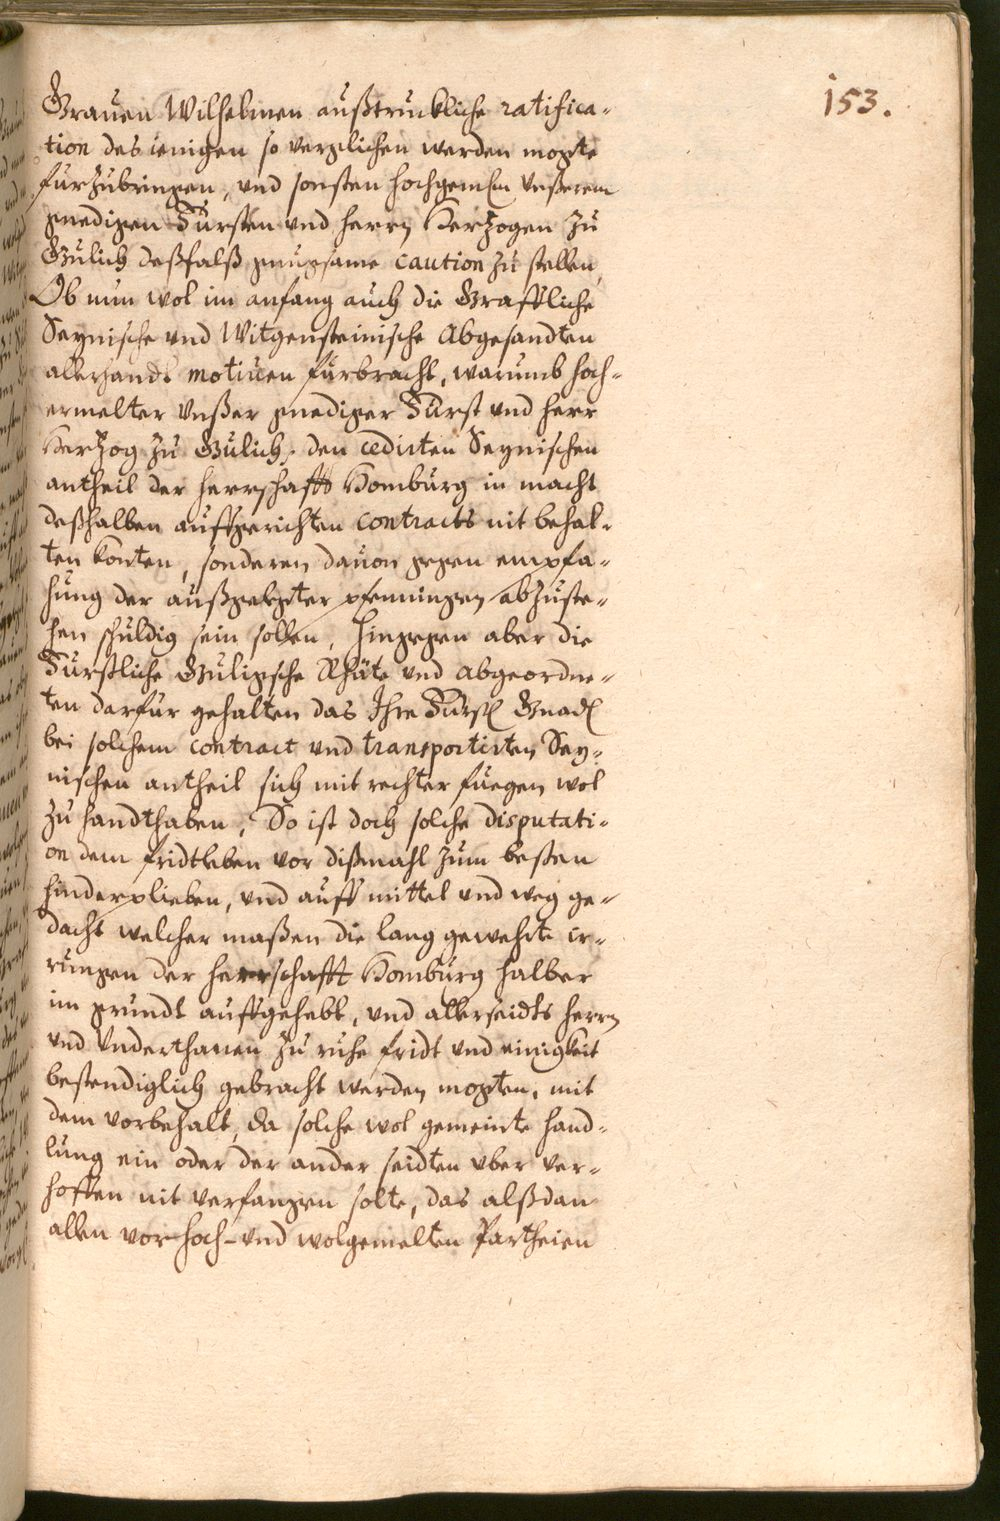 153.
Grauen Wilhelmen außtruckliche ratifica-
tion des ienigen so verglichen werden mogte
furzubringen, und sonsten hochgemln Unßerem
gnedigen Fürsten und herrn Hertzogen zu
Gulich deßfalß gnugsame caution zu stellen,
Ob nun wol im anfang auch die Graffliche
Seynische und Witgensteinische Abgesandten
allerhandt motiuen furbracht, warumb hoch-
ermelter Unßer gnediger Fürst und herr
Hertzog zu Gulich, den cedirten Seynischen
antheil der herrschafft Homburg in macht
deßhalben auffgerichten contracts nit behal-
ten konten, sonderen dauon gegen empfa-
hung der außgelegter pfenningen abzuste-
hen schuldig sein sollen, Hingegen aber die
Fürstliche Guligsche Rhäte und abgeordne-
ten darfur gehalten das Ihre Fürstl Gnadl
bei solchem contract und transportirten Sey-
nischen antheil sich mit rechter fuegen wol
zu handthaben, So ist doch solche disputati-
on dem fridtleben vor dißmahl zum besten
hinderplieben, und auff mittel und weg ge-
dacht welcher maßen die lang gewehrte ir-
rungen der herrschafft Homburg halber
im grundt auffgehebt, und allerseidts herrn
und Underthanen zu ruhe fridt und einigkeit
bestendiglich gebracht werden mogten, mit
dem vorbehalt, da solche wol gemeinte hand-
lung ein oder der ander seidten uber ver-
hoffen nit verfangen solte, das alßdan
allen vor hoch- und wolgemelten Partheien